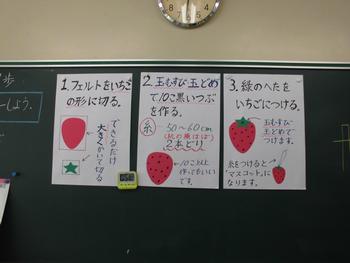 歩
しよう。
1.フェルトをいちご
の形に切る。
できるだけ
大きくかいて切る
2.玉むすび玉どめ
で10こ黒いつぶ
を作る。
糸
50〜60cm
2本どり
10こ以上
作ってもいい
です。
3.緑のへたを
いちごにつける。
玉むすび
玉どめで
つけます。
糸をつけると
"マスコット"に
なります。